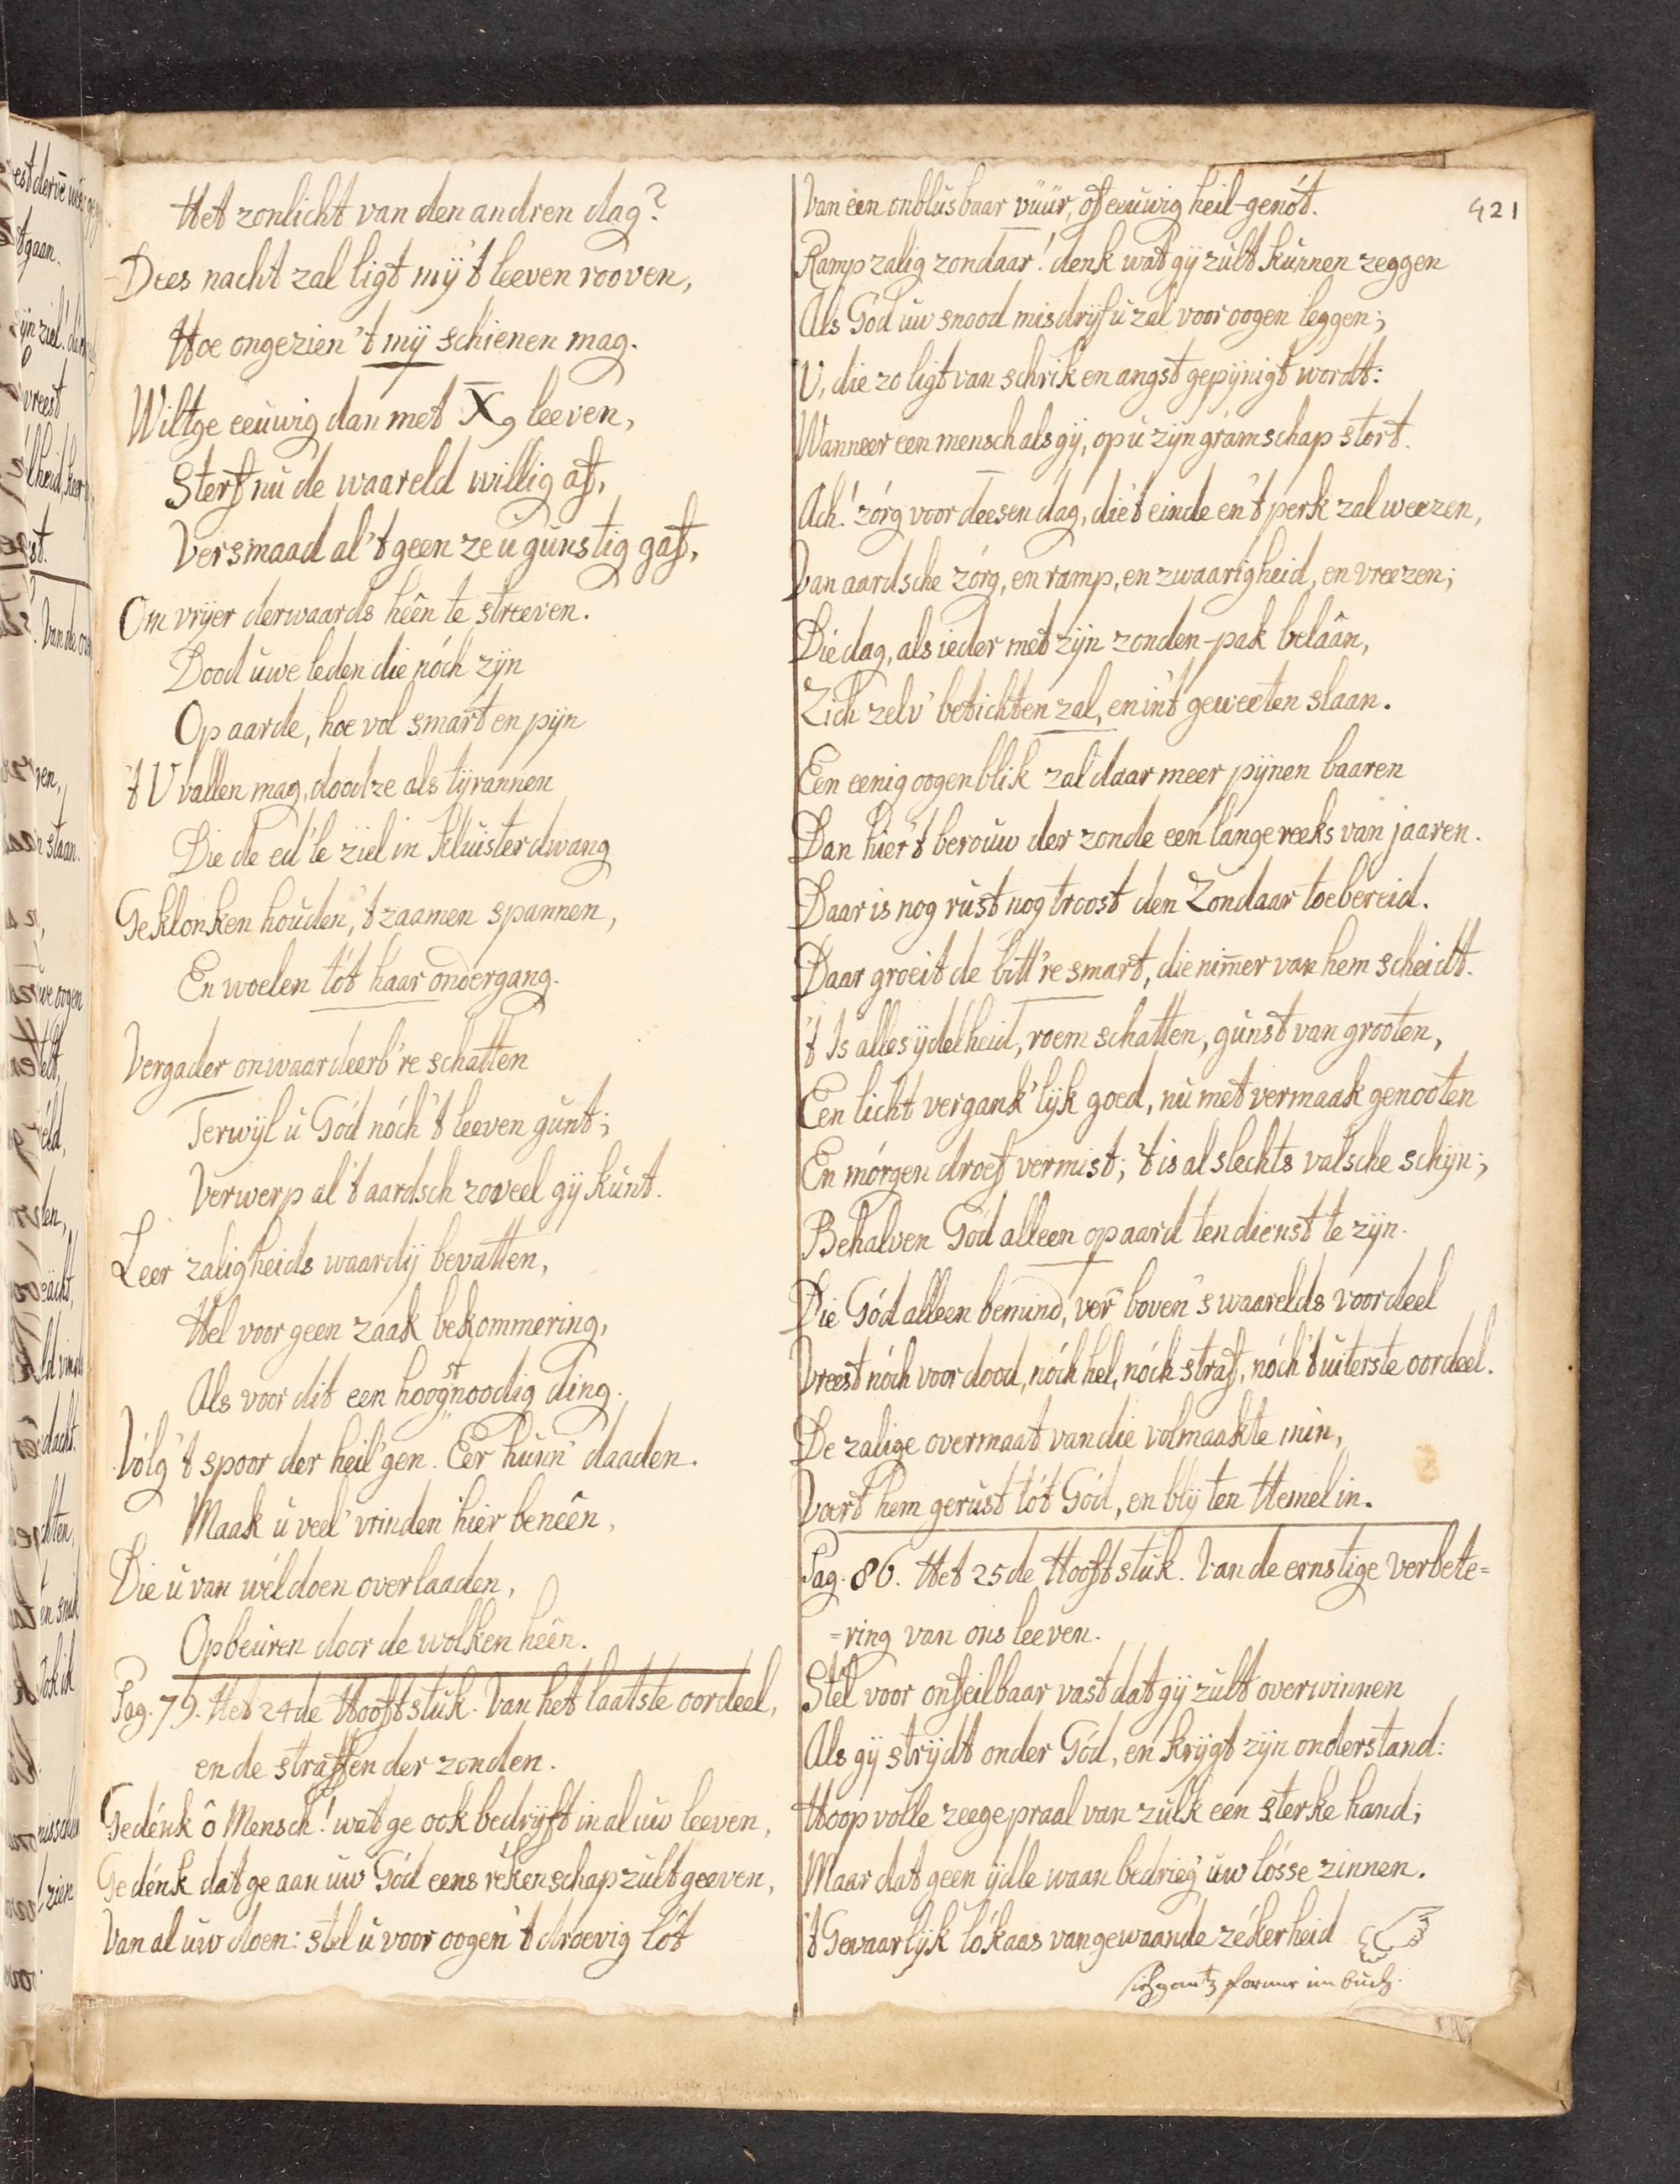 Het zonlicht van den andren dag?
Dees nacht zal ligt mÿ 't leeven rooven,
Hoe ongezien 't mÿ schienen mag.
Wiltge eeuwig dan met X9 leeven,
Sterf nu de waareld willig af,
Versmaad al 't geen ze u gunstig gaf,
Om vrÿer derwaards heên te streeven.
Dood uwe leden die nóch zÿn
Op aarde, hoe vol smart en pÿn
't U vallen mag, doodze als tÿrannen
Die de ed'le ziel in kluisterdwang
Geklonken houden, 't zaamen spannen,
En woelen tót haar ondergang.
Vergader onwaardeerb're schatten
Terwÿl u Gód nóch 't leeven gunt;
Verwerp al 't aardsch zoveel gÿ kunt.
Leer zaligheids waardÿ bevatten,
Hel voor geen zaak bekommering,
Als voor dit een hoogstnoodig ding.
Vólg 't spoor der heil'gen. Eer hunn' daaden.
Maak u veel' vrinden hier beneên,
Die u van wéldoen overlaaden,
Opbeuren door de wolken heên.
Pag. 79. Het 24de Hooftstuk. Van het laatste oordeel,
en de straffen der zonden.
Gedénk ô Mensch! wat ge ook bedrÿft in al uw leeven,
Gedénk dat ge aan uw Gód eens rékenschap zult geeven,
Van al uw doen: stel u voor oogen 't droevig lót
421
Van een onblusbaar vüür, of eeuwig heil-genót.
Rampzalig zondaar! denk wat gÿ zult kunnen zeggen
Als Gód uw snood misdrÿf u zal voor oogen leggen;
U, die zo ligt van schrik en angst gepÿnigt wordt:
Wanneer een mensch als gÿ, op u zÿn gramschap stort.
Ach! zórg voor deesen dag, die 't einde en 't perk zal weezen,
Van aardsche zórg, en ramp, en zwaarigheid, en vreezen;
Die dag, als ieder met zÿn zonden-pak belaân,
Zich zelv' betichten zal, en in 't geweeten slaan.
Een eenig oogenblik zal daar meer pÿnen baaren
Dan hier 't berouw der zonde een lange reeks van jaaren.
Daar is nog rust nog troost den Zondaar toebereid.
Daar groeit de bitt're smart, die nim̄er van hem scheidt.
't Is alles ÿdelheid, roem schatten, gunst van grooten,
Een licht vergank'lÿk goed, nu met vermaak genooten
En mórgen droef vermist; 't is al slechts valsche schÿn;
Behalven Gód alleen op aard ten dienst te zÿn.
Die Gód alleen bemind, ver boven 's waarelds voordeel
Vreest nóch voor dood, nóch hel, nóch straf, nóch 't uiterste oordeel.
De zalige overmaat van die volmaakte min,
Voert hem gerust tót Gód, en blÿ ten Hemel in.
Pag. 86. Het 25de Hooftstuk. Van de ernstige verbete=
=ring van ons leeven.
Stél voor onfeilbaar vast dat gÿ zult overwinnen
Als gÿ strÿdt onder Gód, en krÿgt zÿn onderstand:
Hoop volle zeegepraal van zulk een sterke hand;
Maar dat geen ÿdle waan bedrieg' uw lósse zinnen.
't Gevaarlÿk lókaas van gewaande zékerheid
im buch.